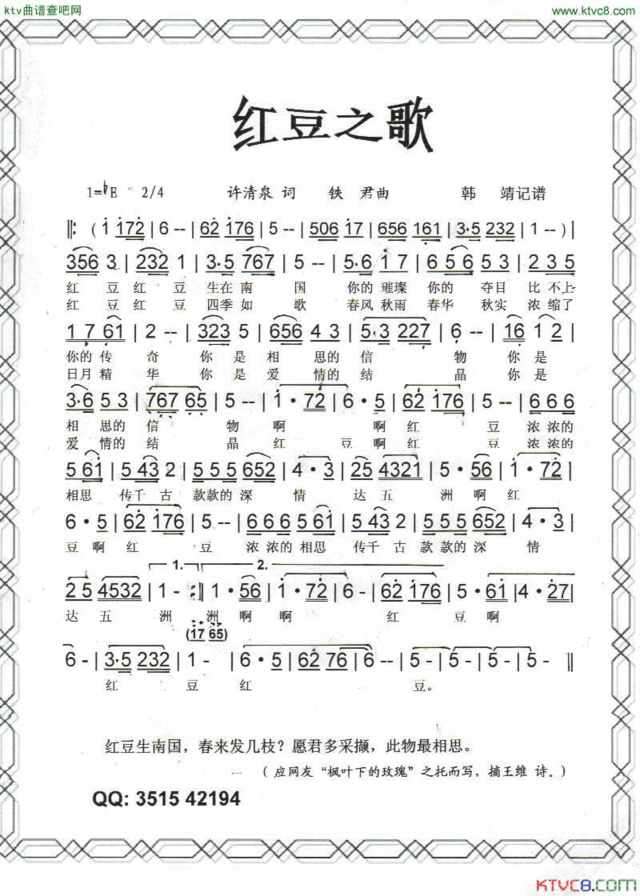 ktv曲谱查吧网
www.ktvc8.com
红豆之歌
1=♭E 2/4 许清泉 词 铁 君曲 韩 靖记谱
‖: ( 1 172 | 6 -- | 62 176 | 5 -- | 506 17 | 656 161 | 3·5 232 | 1 -- ) |
356 3 | 232 1 | 3·5 767 | 5 -- | 5·6 17 | 6 5 6 5 3 | 2 3 5 |
红 豆 红 豆 生在 南 国 你的 璀璨 你的 夺目 比 不上
红 豆 红 豆 四季 如 歌 春风 秋雨 春华 秋实 浓 缩了
1 7 61 | 2 -- | 323 5 | 656 4 3 | 5·3 227 | 6 -- | 16 1 2 |
你的 传 奇 你 是 相 思的 信 物 你 是
日月 精 华 你 是 爱 情的 结 晶 你 是
3·6 5 3 | 767 65 | 5 -- | 1·72 | 6·5 | 62 176 | 5 -- | 6 6 6 |
相 思的 信 物 啊 啊 红 豆 浓浓的
爱 情的 结 晶 红 豆 啊 红 豆 浓浓的
5 61 | 5 43 2 | 5 5 5 652 | 4·3 | 25 4321 | 5·56 | 1·72 |
相思 传千 古 款款的 深 情 达 五 洲 啊 红
6·5 | 62 176 | 5 -- | 6 6 6 5 61 | 5 43 2 | 5 5 5 652 | 4·3 |
豆 啊 红 豆 浓 浓的 相思 传千 古 款 款的 深 情
1. 2.
2 5 4532 | 1 - :‖ 1·56 | 1·72 | 6 - | 62 176 | 5·61 | 4·27 |
达 五 洲 洲 啊 啊 红 豆 啊
(17 65)
6 - | 3·5 232 | 1 - | 6·5 | 62 76 | 6 -- | 5 - | 5 - | 5 - ‖
红 豆 红 豆。
红豆生南国，春来发几枝？愿君多采撷，此物最相思。
— （应网友“枫叶下的玫瑰”之托而写，摘王维 诗。）
QQ: 3515 42194
KTVC8.COM